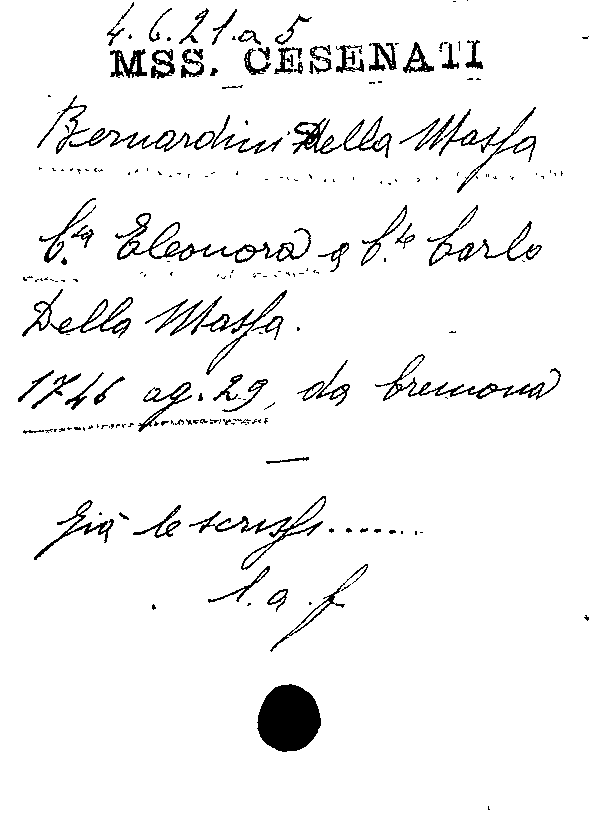 4.6.21.a 5
MSS. CESENATI
Bernardini Della Massa
C.ssa Eleonora a C.te Carlo
Della Massa.
1746 ag. 29, da Cremona
—
Già le scrissi.......
l. a. f